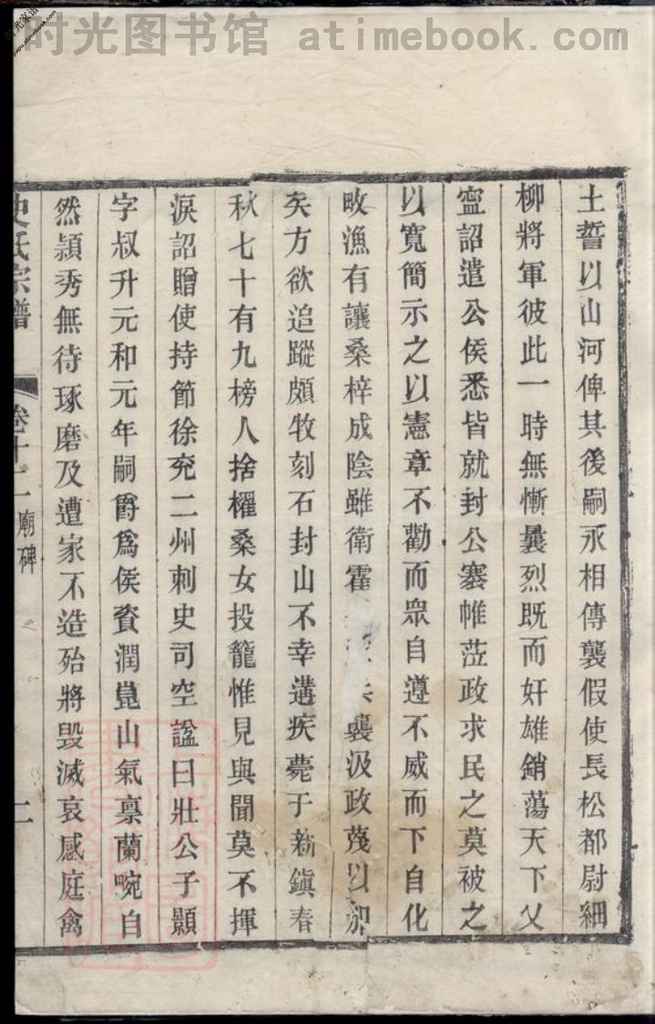 时光图书馆 atimebook.com
土誓以山河俾其後嗣永相傳襲假使長松都尉細
柳將軍彼此一時無慚曩烈既而奸雄銷蕩天下乂
寍詔遣公侯悉皆就封公褰帷莅政求民之莫被之
以寬簡示之以憲章不勸而眾自遵不威而下自化
畋漁有讓桑梓成陰雖衛霍襲汲政蔑以加
矣方欲追蹤頗牧刻石封山不幸遘疾薨于新鎭春
秋七十有九榜人捨櫂桑女投籠惟見與聞莫不揮
淚詔贈使持節徐兗二州刺史司空諡曰壯公子顯
字叔升元和元年嗣爵爲侯資潤崑山氣禀蘭畹自
然頴秀無待琢磨及遭家不造殆將毀滅哀感庭禽
史氏宗譜 卷十二 廟碑 二